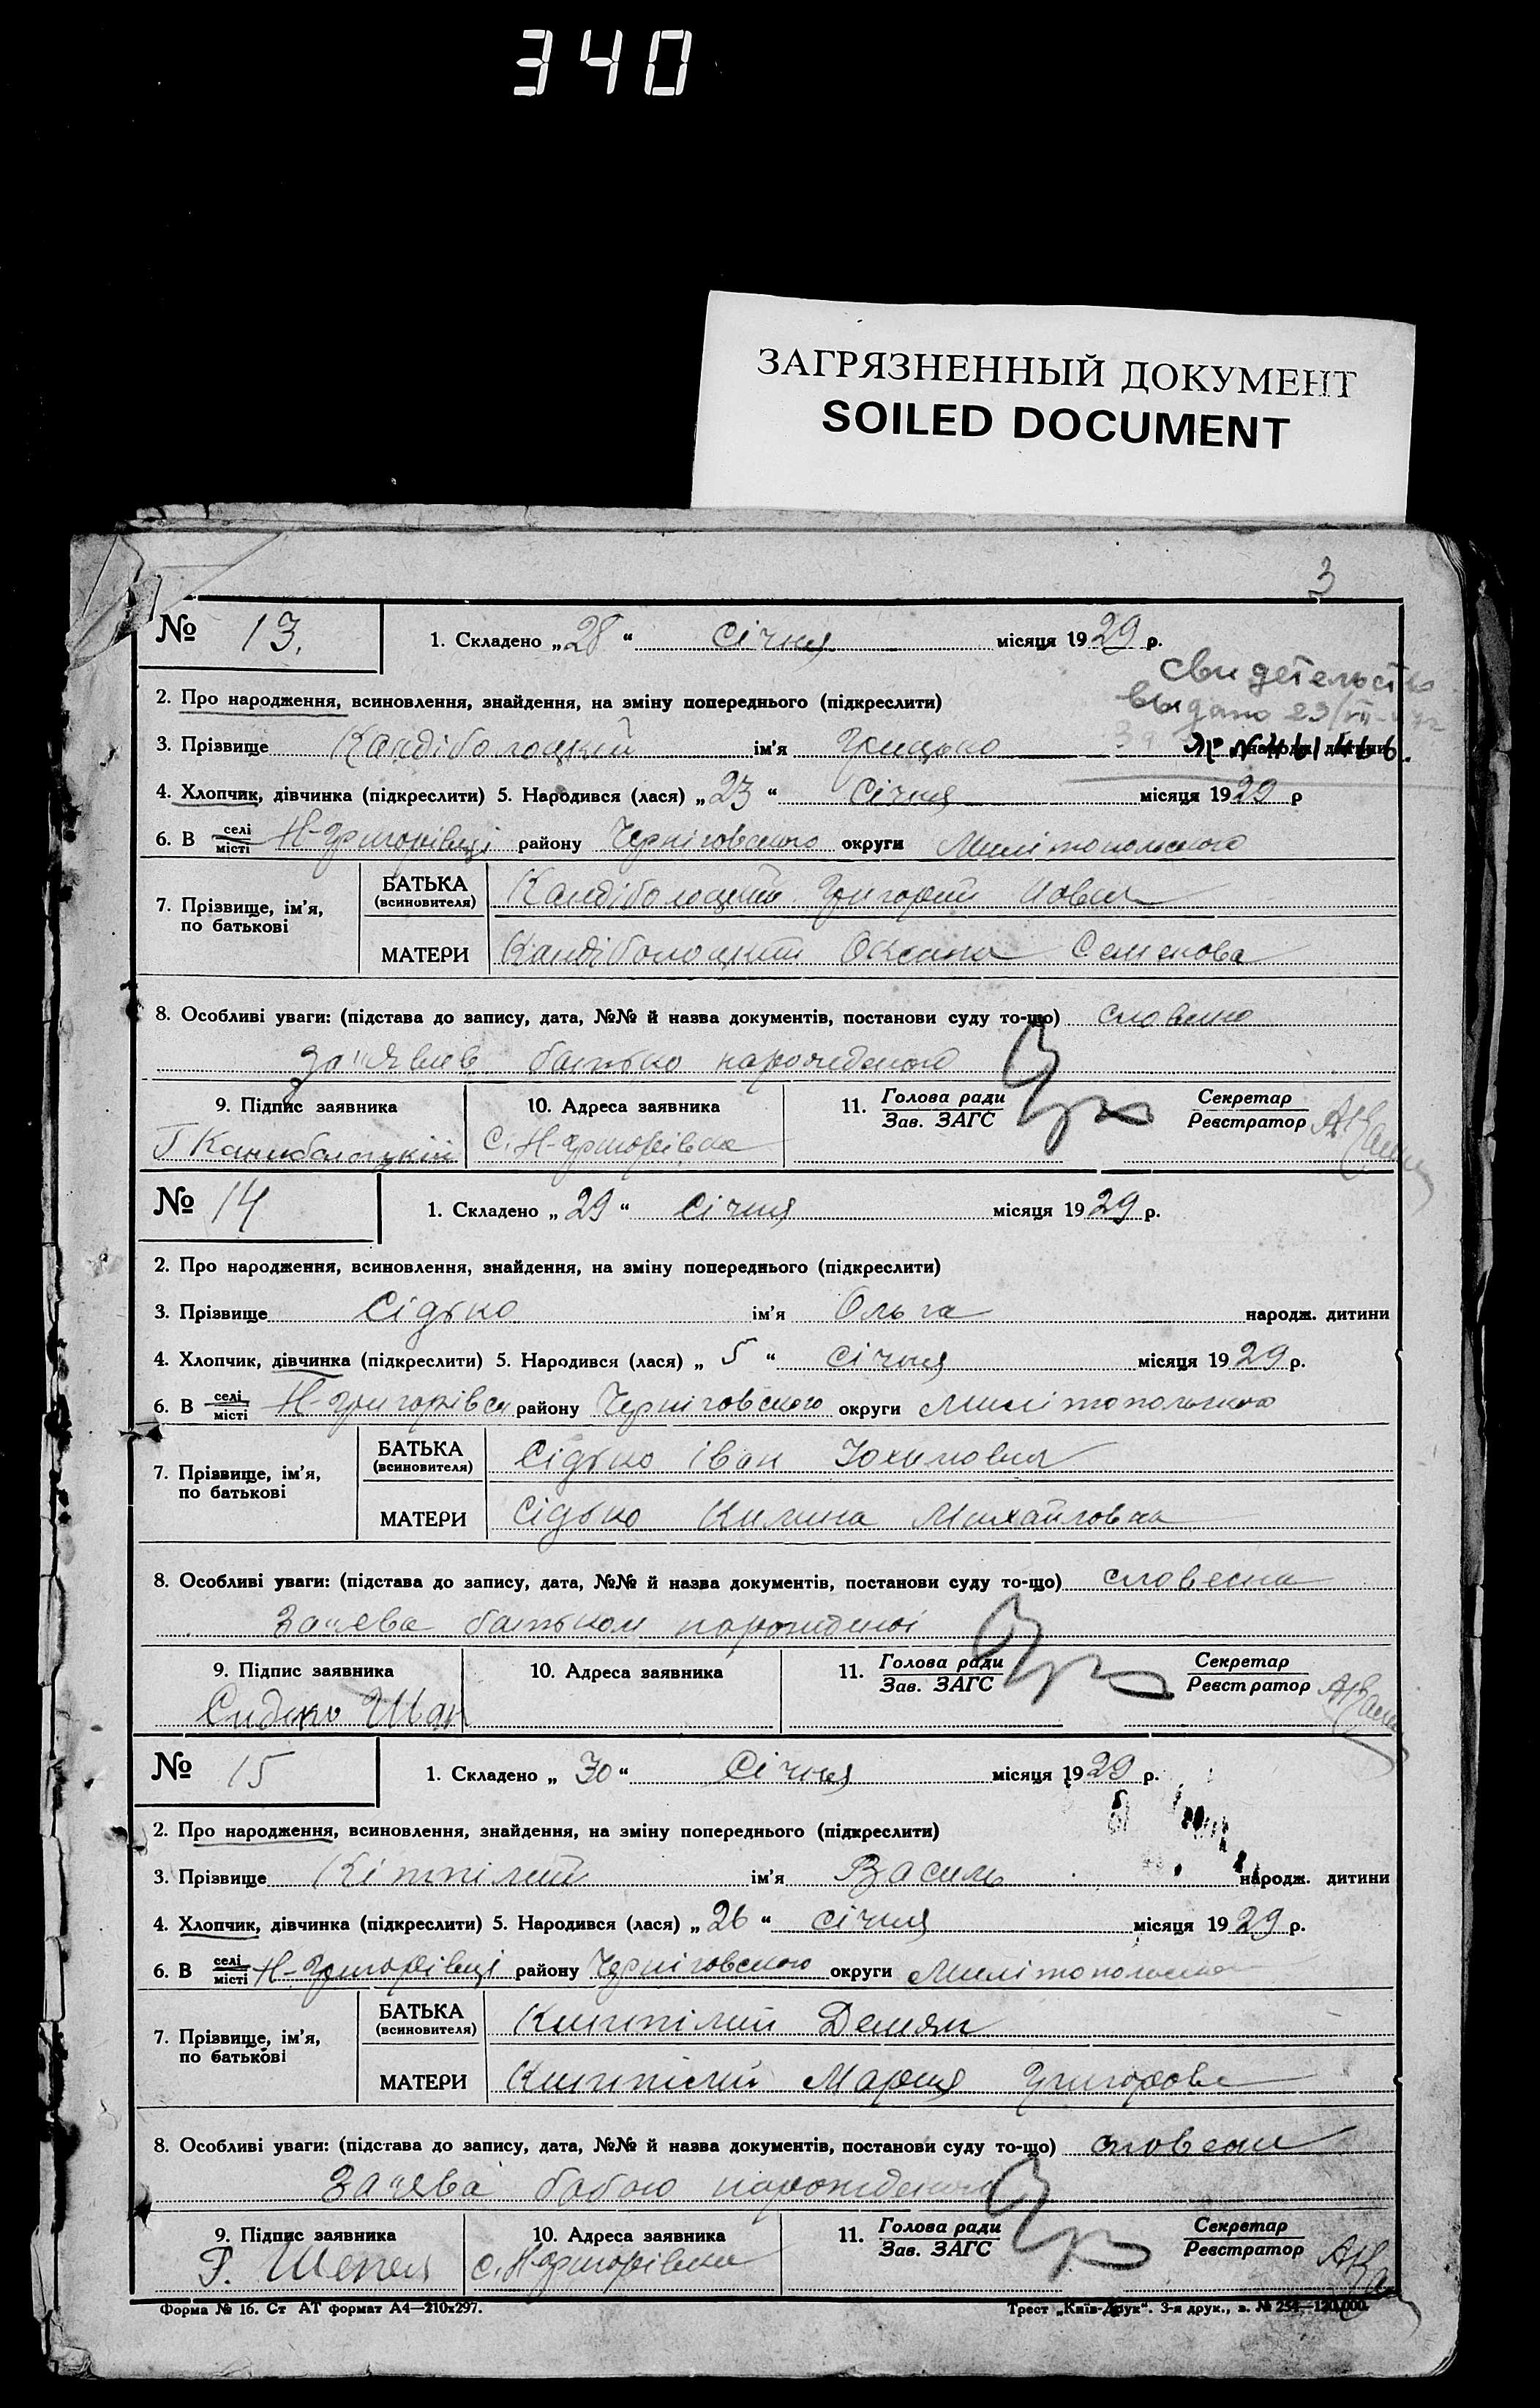 340
ЗАГРЯЗНЕННЫЙ ДОКУМЕНТ
SOILED DOCUMENT
3
№ 13. 1. Складено „28“ січня місяця 1929 р.
свидетельство
2. Про народження, всиновлення, знайдення, на зміну попереднього (підкреслити)
выдано 23/VII
3. Прізвище Кандіболоцкий ім'я Грицько народж. дитини
4. Хлопчик, дівчинка (підкреслити) 5. Народився (лася) „23“ Січня місяця 1929 р
6. В селі/місті Н-Григорівці району Черніговського округи Милітопольского
7. Прізвище, ім'я, по батькові
БАТЬКА (всиновителя) Кандіболоцкий Григорий
МАТЕРИ Кандіболоцкий Оксана Семенова
8. Особливі уваги: (підстава до запису, дата, №№ й назва документів, постанови суду то-що) словесно
за'явив батько народженого
9. Підпис заявника 10. Адреса заявника 11. Голова ради/Зав. ЗАГС Секретар/Реєстратор
с. Н-Григорівка
№ 14 1. Складено „29“ Січня місяця 1929 р.
2. Про народження, всиновлення, знайдення, на зміну попереднього (підкреслити)
3. Прізвище Сідько ім'я Ольга народж. дитини
4. Хлопчик, дівчинка (підкреслити) 5. Народився (лася) „5“ Січня місяця 1929 р.
6. В селі/місті Н-Григорівка району Черніговського округи Милітопольского
7. Прізвище, ім'я, по батькові
БАТЬКА (всиновителя) Сідько Іван Юхимович
МАТЕРИ Сідько Килина Михайловна
8. Особливі уваги: (підстава до запису, дата, №№ й назва документів, постанови суду то-що) словесна
За'ява батьком народженої
9. Підпис заявника 10. Адреса заявника 11. Голова ради/Зав. ЗАГС Секретар/Реєстратор
Сидько Иван
№ 15 1. Складено „30“ Січня місяця 1929 р.
2. Про народження, всиновлення, знайдення, на зміну попереднього (підкреслити)
3. Прізвище ім'я Василь народж. дитини
4. Хлопчик, дівчинка (підкреслити) 5. Народився (лася) „26“ січня місяця 1929 р.
6. В селі/місті Н-Григорівці району Черніговського округи Милітопольского
7. Прізвище, ім'я, по батькові
БАТЬКА (всиновителя) Демян
МАТЕРИ Мария Григорова
8. Особливі уваги: (підстава до запису, дата, №№ й назва документів, постанови суду то-що) словесна
За'ява бабою народженого
9. Підпис заявника 10. Адреса заявника 11. Голова ради/Зав. ЗАГС Секретар/Реєстратор
с. Н-Григорівка
Форма № 16. Ст АТ формат А4—210х297. Трест „Київ-Друк“. 3-я друк., з. № 254—120.000.